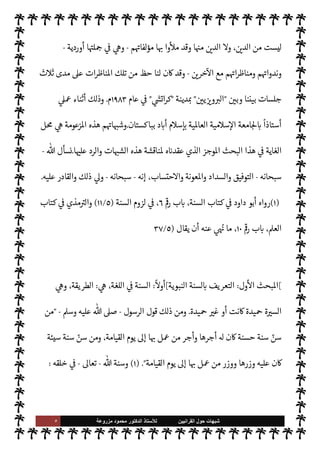 ليست من الدين، ولا الدين منها وقد ملأوا بها مؤلفاتهم - وهي في جملتها أوردية -
وندواتهم ومناظراتهم مع الآخرين - وقد كان لنا حظ من تلك المناظرات على مدى ثلاث
جلسات بيننا وبين "البرويزيين" بمدينة "كراتشي" في عام ١٩٨٣م. وذلك أثناء عملي
أستاذاً بالجامعة الإسلامية العالمية بإسلام أباد بباكستان.وشبهاتهم هذه المزعومة هي محل
الغاية في هذا البحث الموجز الذي عقدناه لمناقشة هذه الشبهات والرد عليها.نسأل الله -
سبحانه - التوفيق والسداد والمعونة والاحتساب، إنه - سبحانه - ولي ذلك والقادر عليه.
(١)رواه أبو داود في كتاب السنة، باب رقم ٦، في لزوم السنة (١١/٥) والترمذي في كتاب
العلم، باب رقم ١٠، ما نهي عنه أن يقال (٣٧/٥
]المبحث الأول: التعريف بالسنة النبوية]أولاً: السنة في اللغة، هي: الطريقة، وهي
السيرة حميدة كانت أو غير حميدة. ومن ذلك قول الرسول - صلى الله عليه وسلم - "من
سنّ سنة حسنة كان له أجرها وأجر من عمل بها إلى يوم القيامة، ومن سنّ سنة سيئة
كان عليه وزرها ووزر من عمل بها إلى يوم القيامة". (١) وسنة الله - تعالى - في خلقه :
شبهات حول القرآنيين للأستاذ الدكتور محمود مزروعة ٣